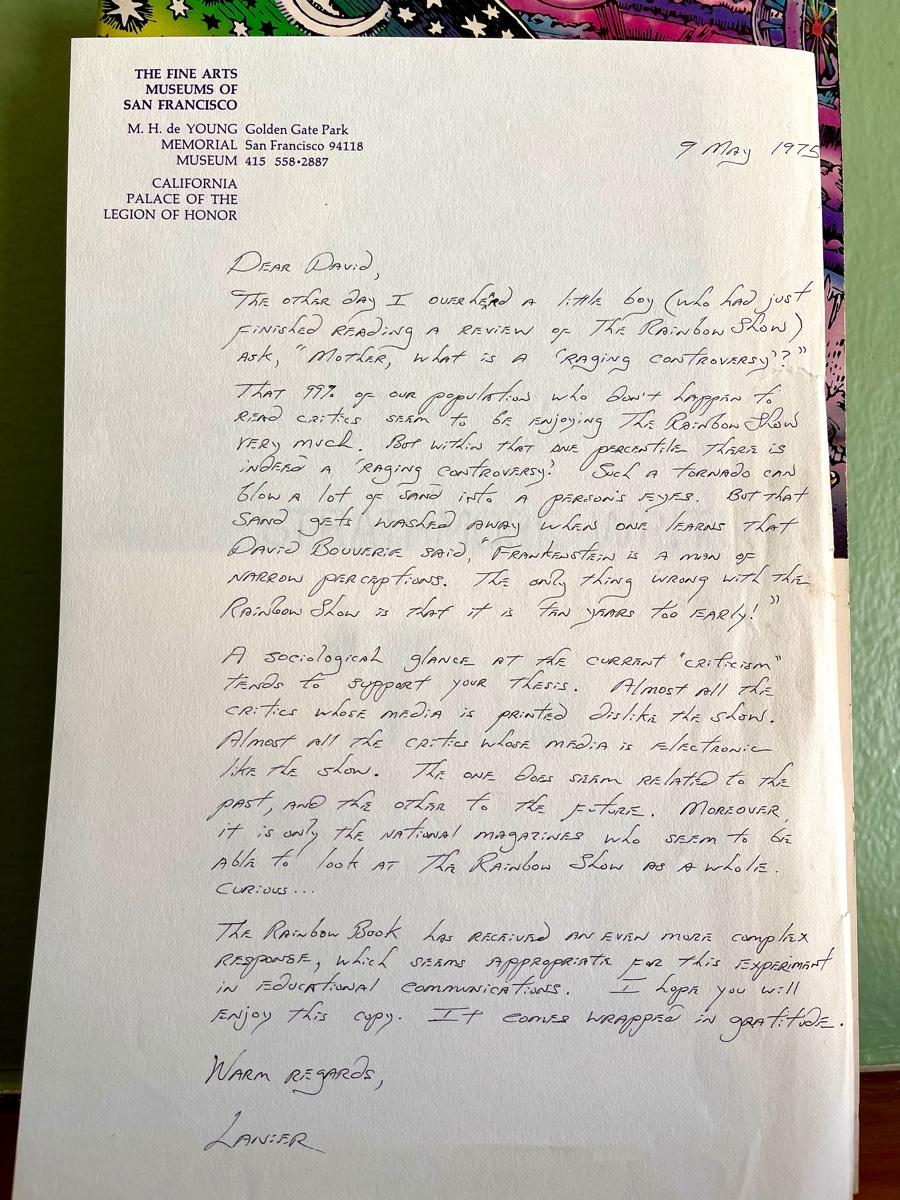 THE FINE ARTS
MUSEUMS OF
SAN FRANCISCO
M. H. de YOUNG Golden Gate Park
MEMORIAL San Francisco 94118
MUSEUM 415 558•2887
CALIFORNIA
PALACE OF THE
LEGION OF HONOR
9 May 1975
Dear David,
The other day I overheard a little boy (who had just
finished reading a review of The Rainbow Show)
ask, "Mother, what is a 'raging controversy'?"
That 99% of our population who don't happen to
read critics seem to be enjoying The Rainbow Show
very much. But within that one percentile there is
indeed a 'raging controversy'! Such a tornado can
blow a lot of sand into a person's eyes. But that
sand gets washed away when one learns that
David Bouverie said, "Frankenstein is a man of
narrow perceptions. The only thing wrong with the
Rainbow Show is that it is ten years too early!"
A sociological glance at the current "criticism"
tends to support your thesis. Almost all the
critics whose media is printed dislike the show.
Almost all the critics whose media is electronic
like the show. The one does seem related to the
past, and the other to the future. Moreover,
it is only the national magazines who seem to be
able to look at The Rainbow Show as a whole.
Curious...
The Rainbow Book has received an even more complex
response, which seems appropriate for this experiment
in educational communications. I hope you will
enjoy this copy. It comes wrapped in gratitude.
Warm regards,
Lanier